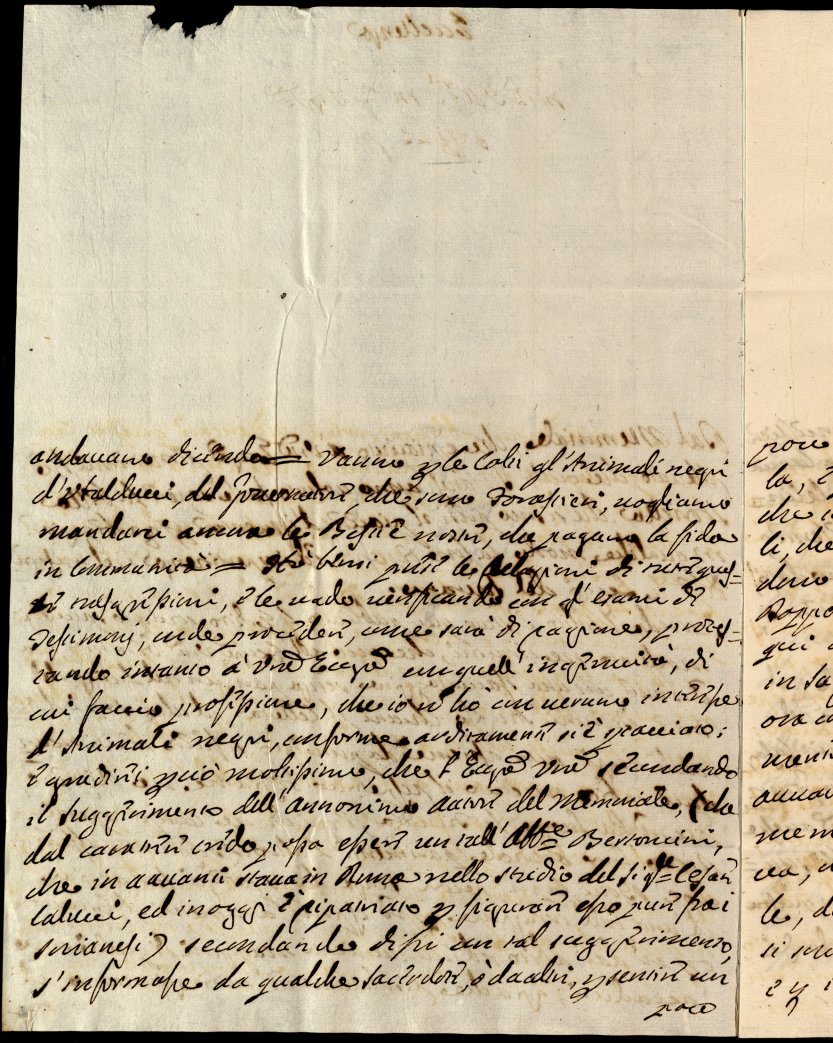 andavano dicendo = Vanno p le Colti gl'Animali negri
d'Italducci, del Governatore, che sono Forastieri, vogliamo
mandarci ancora le Bestie nostre, che pagano la fida
in Communità = Stò bensi le relazioni di tutte ques=
ti trasgressioni, e le vado verificando con gl'esami di
Testimonj, onde procedere, come sarà di ragione, protes=
tando intanto à Vrã Eccza con quell'ingenuità, di
cui faccio professione, che io ñ hò con veruno interesse
d'Animali negri, conforme arditamente si è spacciato;
e gradirei p ciò moltissimo, che l'Eccza Vrã secondando
il suggerimento dell'annonimo autore del Memoriale, (che
dal carattere credo possa essere un tall'Abbe Bertoncini,
che in avanti stava in Roma nello studio del Sigre Cesare
Calucci, ed in oggi è ripatriato p figurare esso pure frà i
Sorianesi) secondando dissi un tal suggerimento,
s'informasse da qualche Sacerdote, ò da altri, p sentire un
poco
poco
la,
che
li, che
dono
Rappo
qui
in
ora
ment
avva
mem
le, d